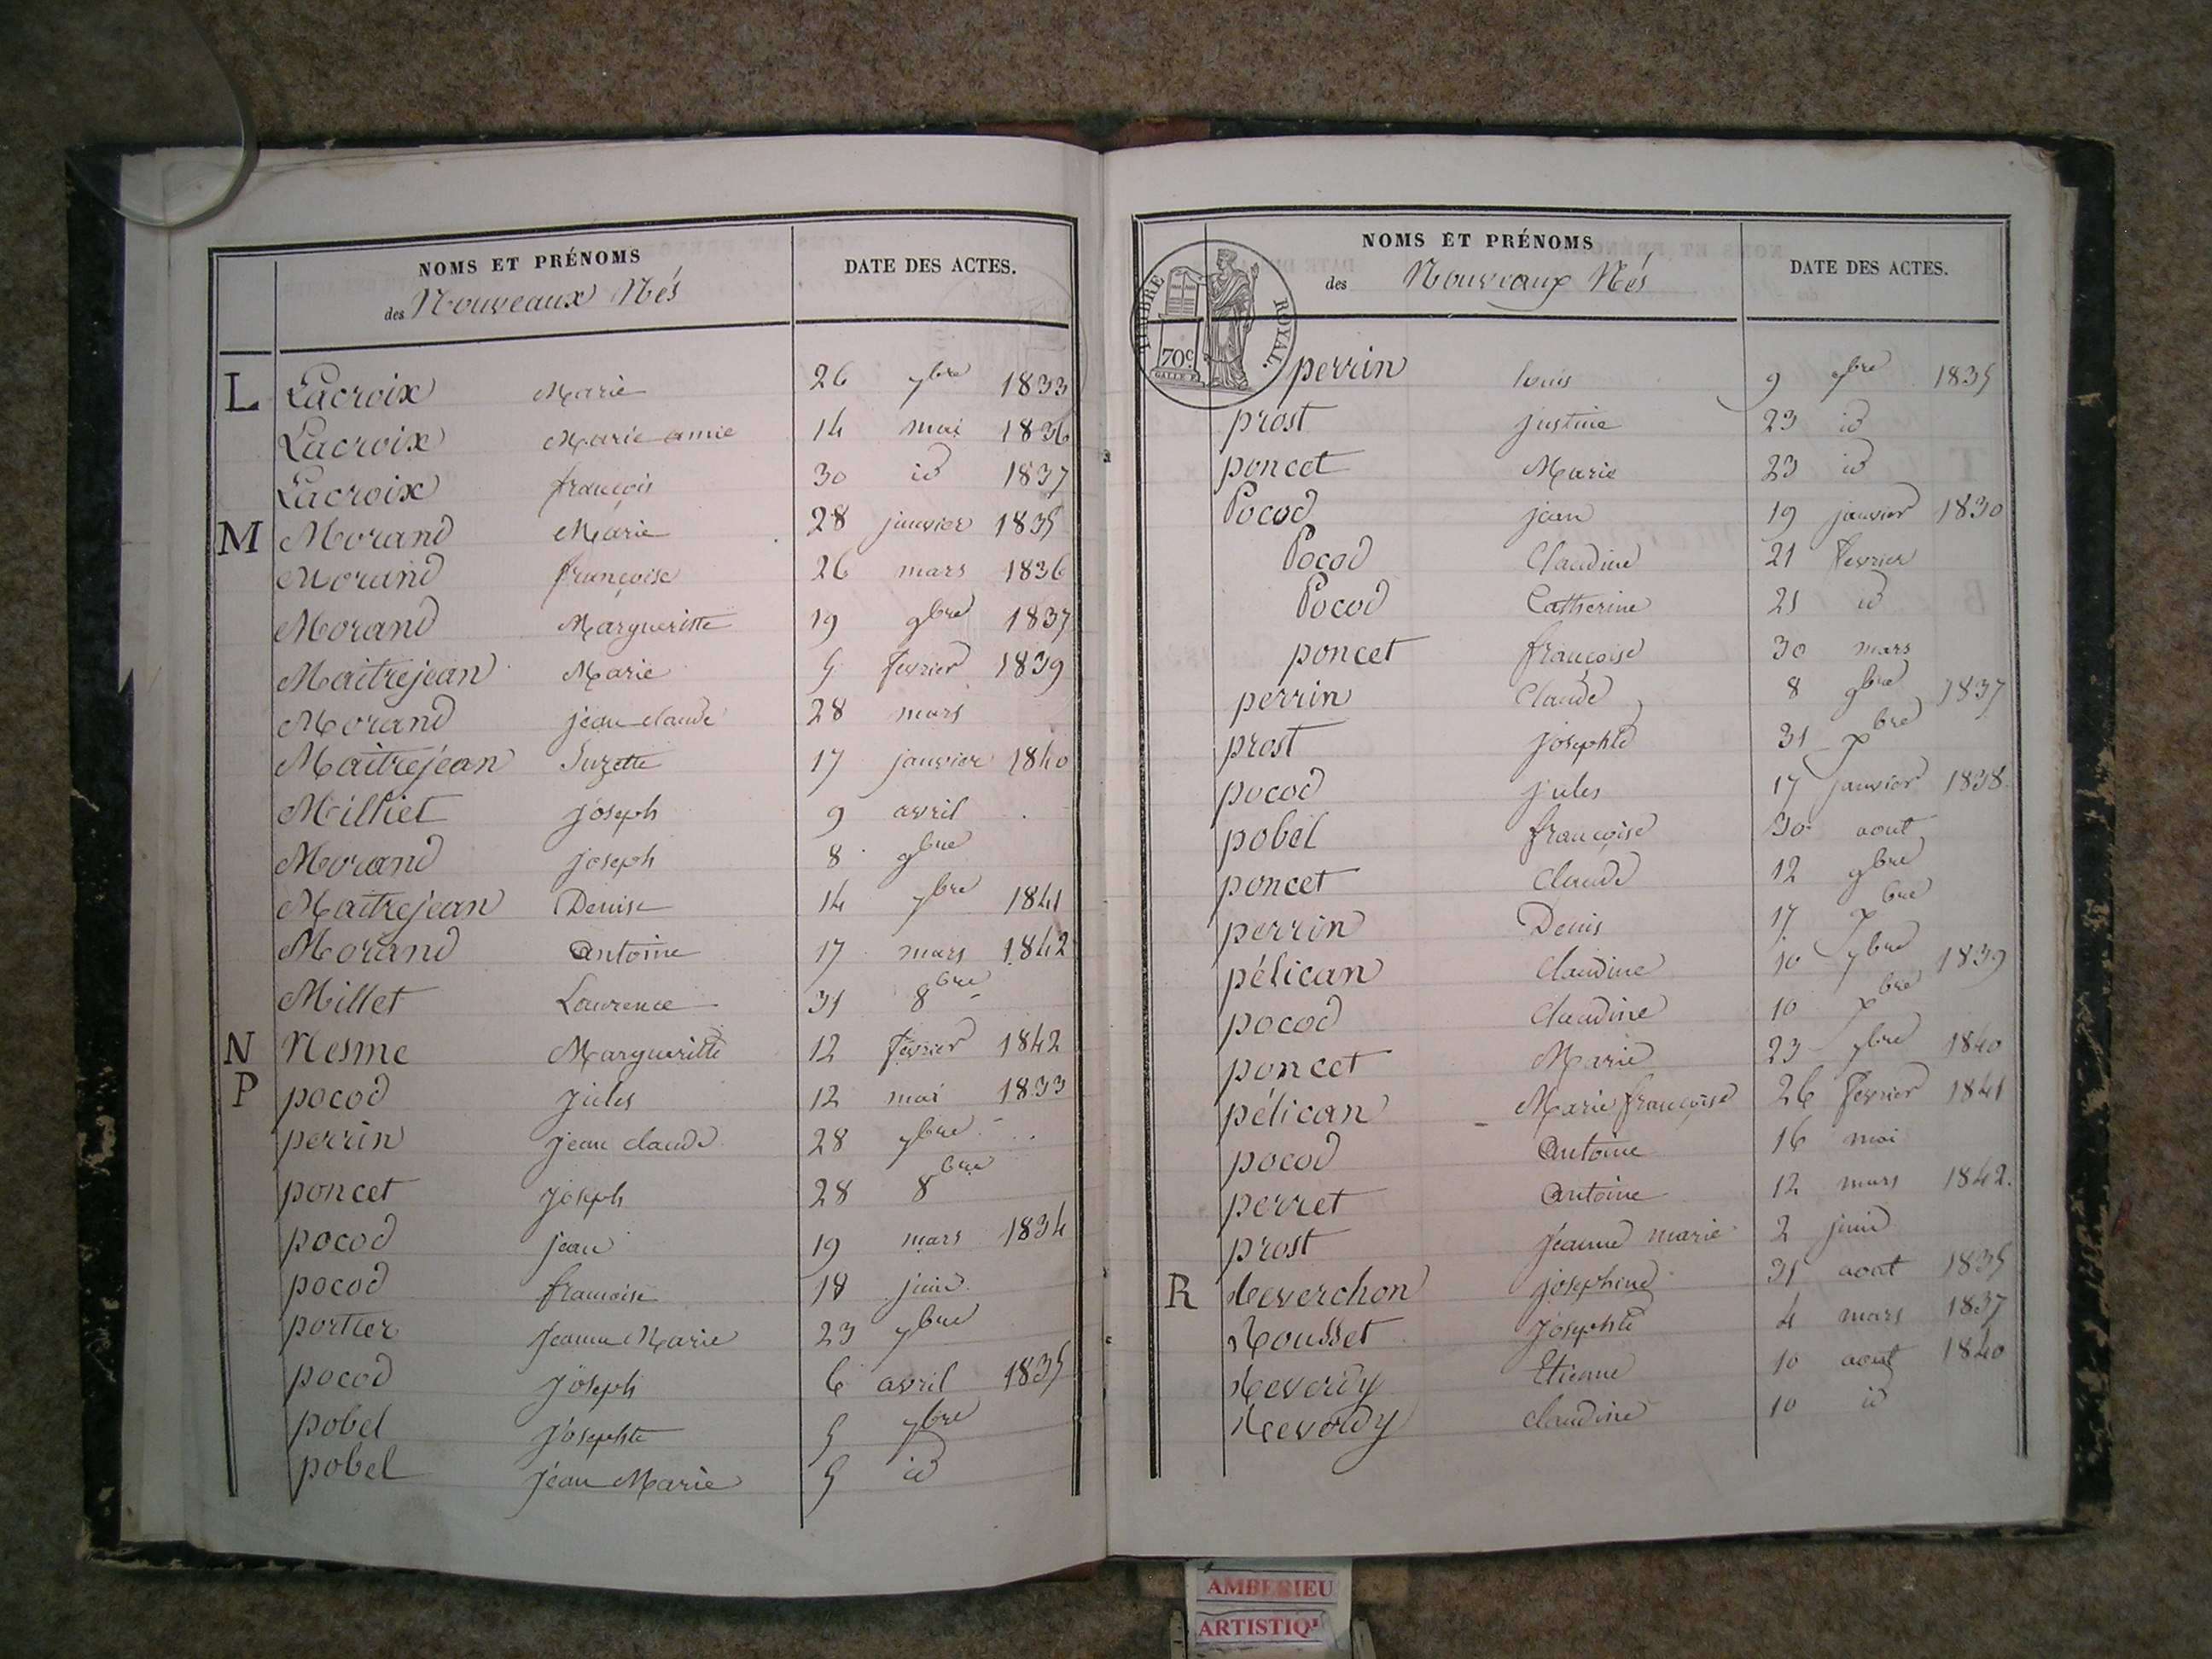 NOMS ET PRÉNOMS
des Nouveaux Nés
DATE DES ACTES.
L Lacroix Marie 26 7bre 1833
Lacroix Marie amie 14 mai 1836
Lacroix françois 30 id 1837
M Morand Marie 28 janvier 1835
Morand françoise 26 mars 1836
Morand Margueritte 19 9bre 1837
Maitrejean Marie 5 fevrier 1839
Morand jean claude 28 mars
Maitrejean Suzette 17 janvier 1840
Milliet joseph 9 avril
Morand joseph 8 9bre
Maitrejean Denise 14 7bre 1841
Morand antoine 17 mars 1842
Millet Laurence 31 8bre
N Nesme Margueritte 12 février 1842
P pocod jules 12 mai 1833
perrin jean claude 28 7bre
poncet joseph 28 8bre
pocod jean 19 mars 1834
pocod francoise 18 juin
portier jeanne Marie 23 7bre
pocod joseph 6 avril 1835
pobel josephte 5 7bre
pobel jean Marie 5 id
NOMS ET PRÉNOMS
des Nouveaux Nés
DATE DES ACTES.
TIMBRE ROYAL.
70c
perrin louis 9 9bre 1835
prost justine 23 id
poncet Marie 23 id
Pocod jean 19 janvier 1830
Pocod Claudine 21 fevrier
Pocod Catherine 21 id
poncet françoise 30 mars
perrin Claude 8 9bre 1837
prost josephte 31 xbre
pocod jules 17 janvier 1838
pobel françoise 30 aout
poncet Claude 12 9bre
perrin Denis 17 xbre
pélican Claudine 10 7bre 1839
pocod Claudine 10 xbre
poncet Marie 23 7bre 1840
pélican Marie françoise 26 fevrier 1841
pocod antoine 16 mai
perret antoine 12 mars 1842.
prost jeanne marie 2 juin
R Reverchon josephine 31 aout 1835
Rousset josephte 4 mars 1837
Reverdy Etienne 10 aout 1840
Reverdy claudine 10 id
AMBERIEU
ARTISTIQ